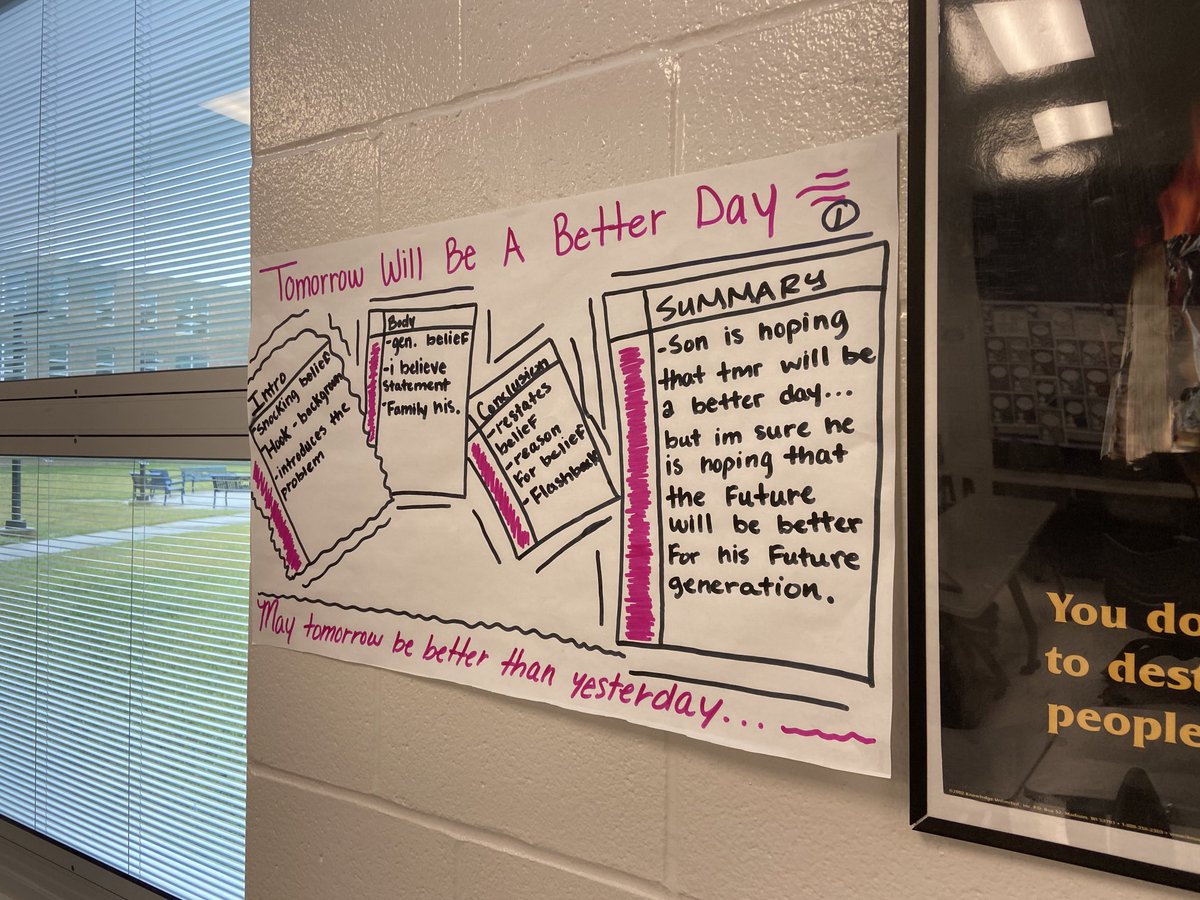 Tomorrow Will Be A Better Day
1
Intro
shocking belief
Hook - background
-introduces the
problem
Body
-gen. belief
-i believe
statement
-Family his.
Conclusion
-restates
belief
-reason
For belief
-Flashback
SUMMARY
-Son is hoping
that tmr will be
a better day...
but im sure he
is hoping that
the Future
will be better
For his Future
generation.
May tomorrow be better than yesterday...
You do
to dest
people